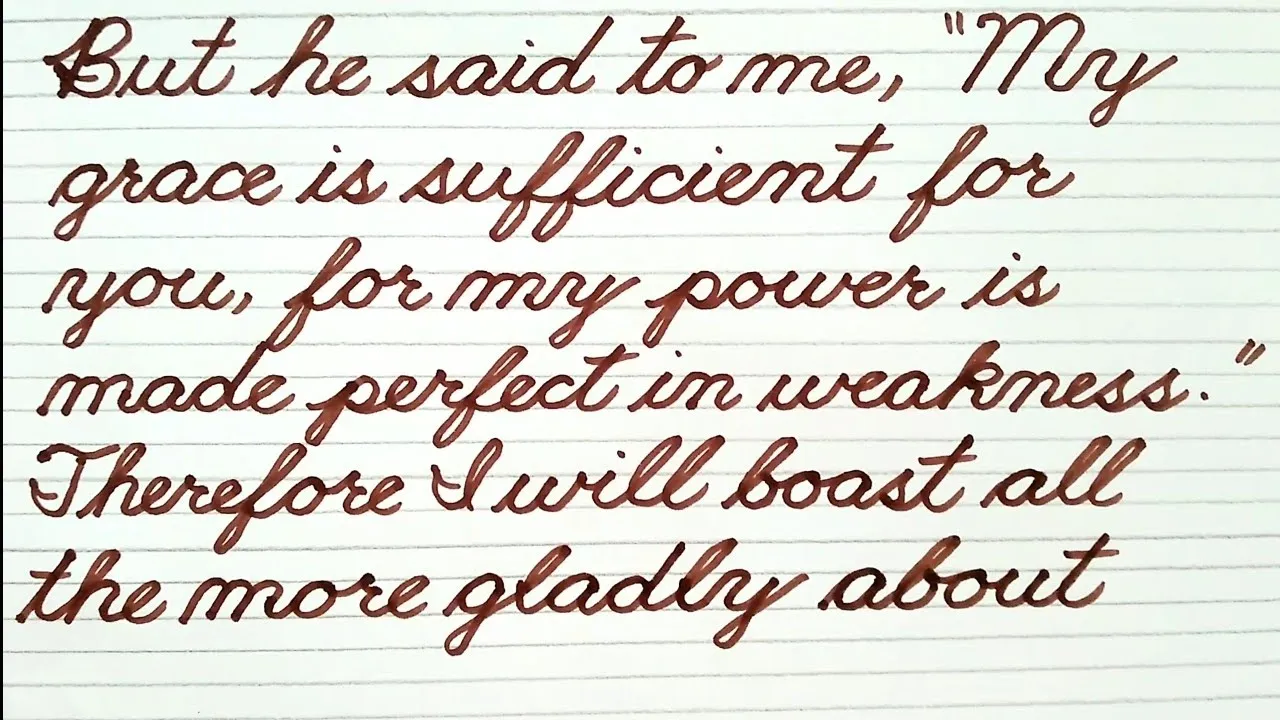 But he said to me, "My
grace is sufficient for
you, for my power is
made perfect in weakness."
Therefore I will boast all
the more gladly about